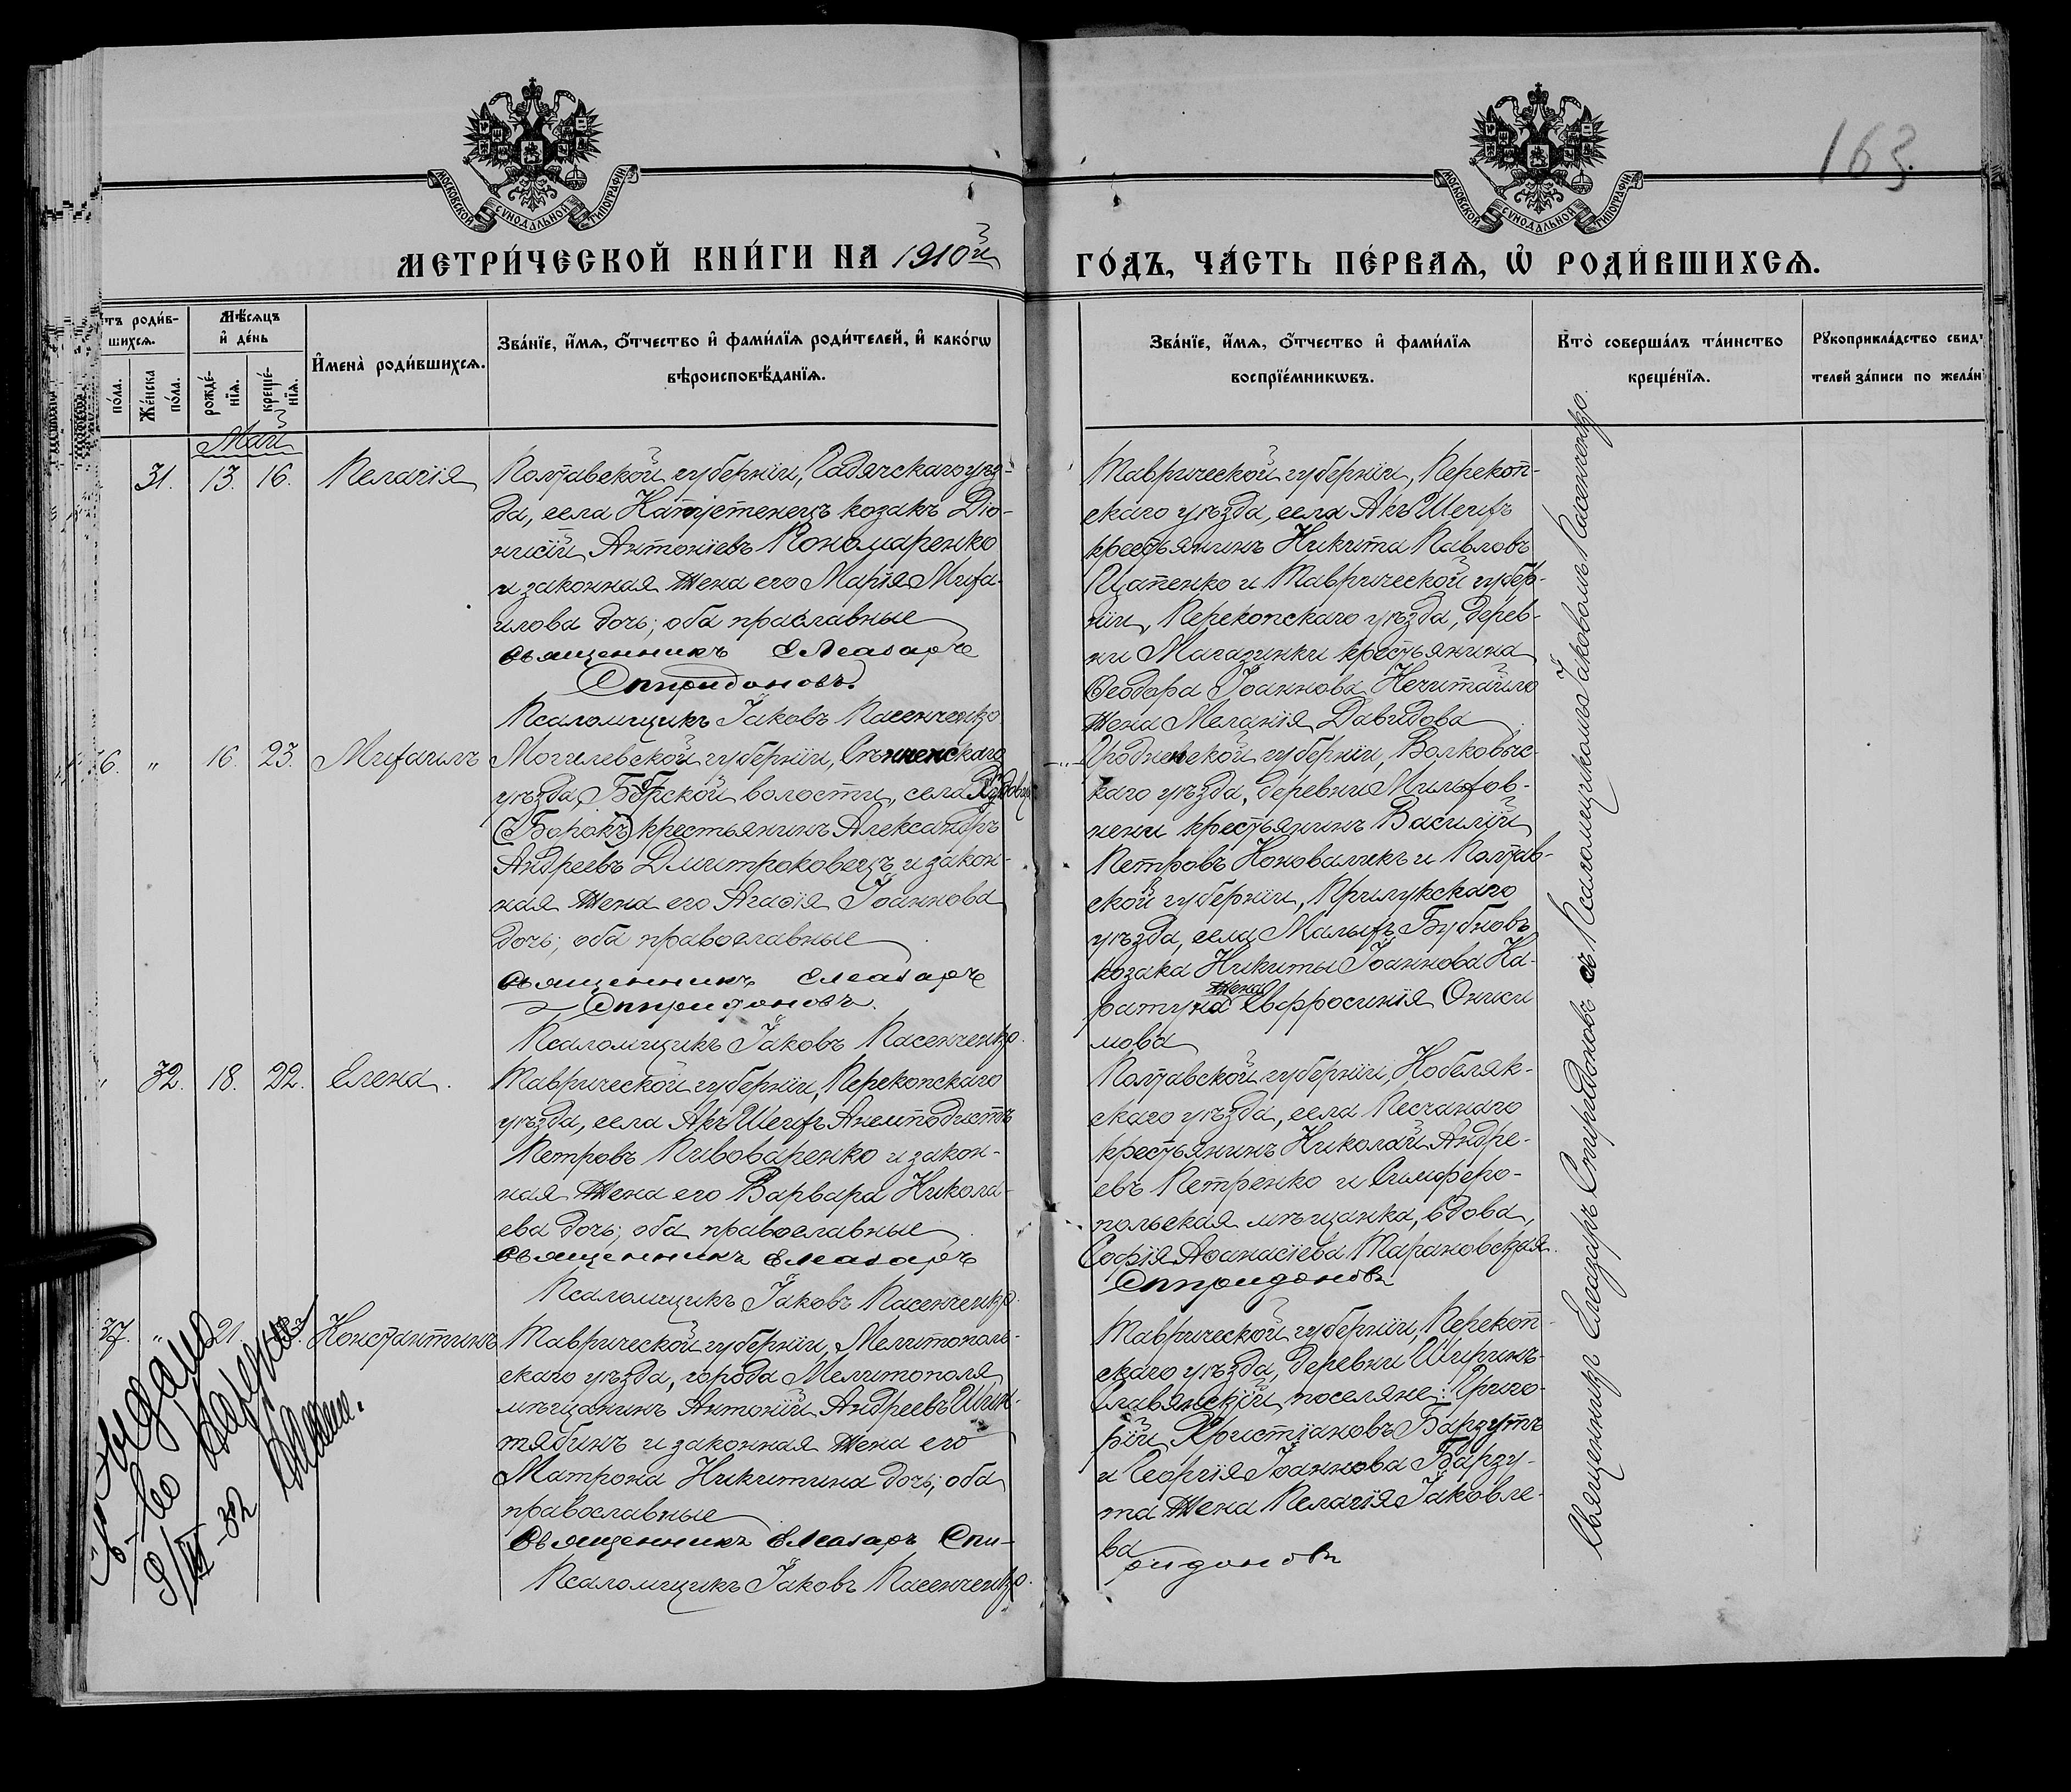 163.
МОСКОВСКОЙ СѴНОДАЛЬНОЙ ТИПОГРАФІИ
МОСКОВСКОЙ СѴНОДАЛЬНОЙ ТИПОГРАФІИ
МЕТРИ́ЧЕСКОЙ КНИ́ГИ НА 1910й
ГО́ДЪ, ЧА́СТЬ ПЕ́РВАѦ, Ѡ҆ РОДИ́ВШИХСѦ.
тъ роди́в-
шихсѧ.
по́ла.
Же́нска по́ла.
Мѣ́сѧцъ
и҆ де́нь
рожде́-нїѧ.
креще́-нїѧ.
И҆мена̀ роди́вшихсѧ.
Зва́нїе, и҆́мѧ, ѻ҆́тчество и҆ фами́лїѧ роди́телей, и҆ како́гѡ
вѣроисповѣ́данїѧ.
Зва́нїе, и҆́мѧ, ѻ҆́тчество и҆ фами́лїѧ
воспрїе́мникѡвъ.
Кто̀ соверша́лъ та́инство
креще́нїѧ.
Рꙋкоприкла́дство свид
телей за́писи по жела́н
Май
31. 13. 16. Пелагія
Полтавской губерніи, Гадячскаго уѣз-
да, села Капустенецъ козакъ Діо-
нисій Антоніевъ Пономаренко
и законная жена его Марія Миха-
илова дочь; оба праславные
Священникъ Елеазаръ
Спиридоновъ.
Псаломщикъ Іаковъ Пасенченко
Таврической губерніи, Перекоп-
скаго уѣзда, села Акъ Шеихъ
крестьянинъ Никита Павловъ
Цапенко и Таврической губер-
ніи, Перекопскаго уѣзда, дерев-
ни Магазинки крестьянина
Ѳеодора Іоаннова Нечитайло
жена Меланія Давидова
6. " 16. 23. Михаилъ
Могилевской губерніи, Сѣнненскаго
уѣзда, Бобрской волости, села
(Борокъ) крестьянинъ Александръ
Андреевъ Дмитроковецъ и закон-
ная жена его Агаѳія Іоаннова
дочь; оба православные
Священникъ Елеазаръ
Спиридоновъ.
Псаломщикъ Іаковъ Пасенченко.
Гродненской губерніи, Волковыс-
каго уѣзда, деревни Мильхов-
цени крестьянинъ Василій
Петровъ Коновалчикъ и Полтав-
ской губерніи, Прилукскаго
уѣзда, села Малыхъ Бубновъ
козака Никиты Іоаннова Ка-
ратуна жена ЕвфросиніяОниси
мова
" 32. 18. 22. Елена.
Таврической губерніи, Перекопскаго
уѣзда, села Акъ Шеихъ Анемподистъ
Петровъ Пивоваренко и закон-
ная жена его Варвара Никола-
ева дочь; оба православные
Священникъ Елеазаръ
Псаломщикъ Іаковъ Пасенченко.
Полтавской губерніи, Кобеляк-
скаго уѣзда, села Песчанаго
крестьянинъ Николай Андре-
евъ Петренко и Симферо-
польская мѣщанка, вдова,
Софія Аѳанасіева Тарановская.
Спиридоновъ
37. " 21. 23. Константинъ
Таврической губерніи, Мелитополь-
скаго уѣзда, города Мелитополя
мѣщанинъ Антоній Андреевъ
тябинъ и законная жена его
Матрона Никитина дочь; оба
православные
Священникъ Елеазаръ Спи-
Псаломщикъ Іаковъ Пасенченко.
Таврической губерніи, Перекоп-
скаго уѣзда, деревни Ширинъ-
Славянскій поселяне: Григо-
рій Христіановъ Барзутъ
и Георгія Іоаннова Барзу-
та жена Пелагія Іаковле-
ва
ридоновъ
Священникъ Елеазаръ Спиридоновъ съ Псаломщикомъ Іаковомъ Пасенченко.